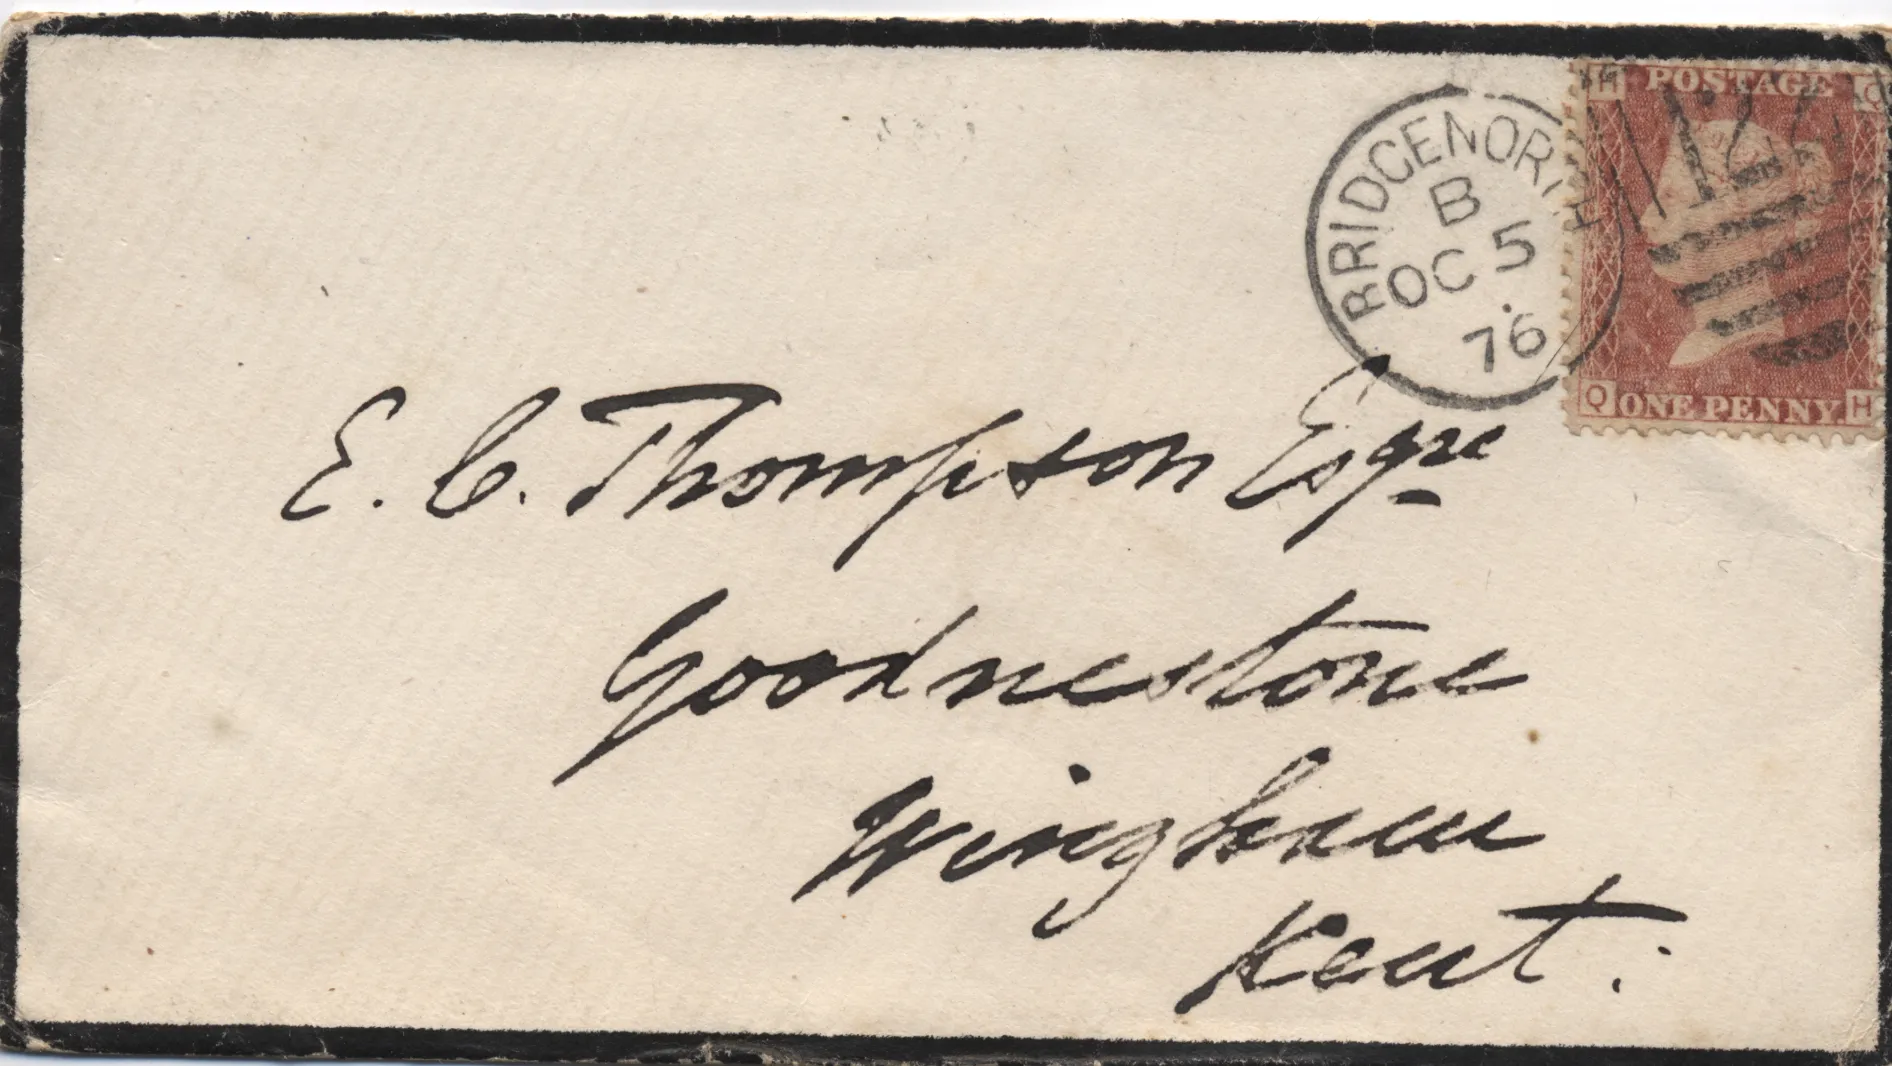 H POSTAGE Q
BRIDGENORTH
B
OC 5
76
Q ONE PENNY. H
E. C. Thompson Esqre
Goodnestone
Wingham
Kent.